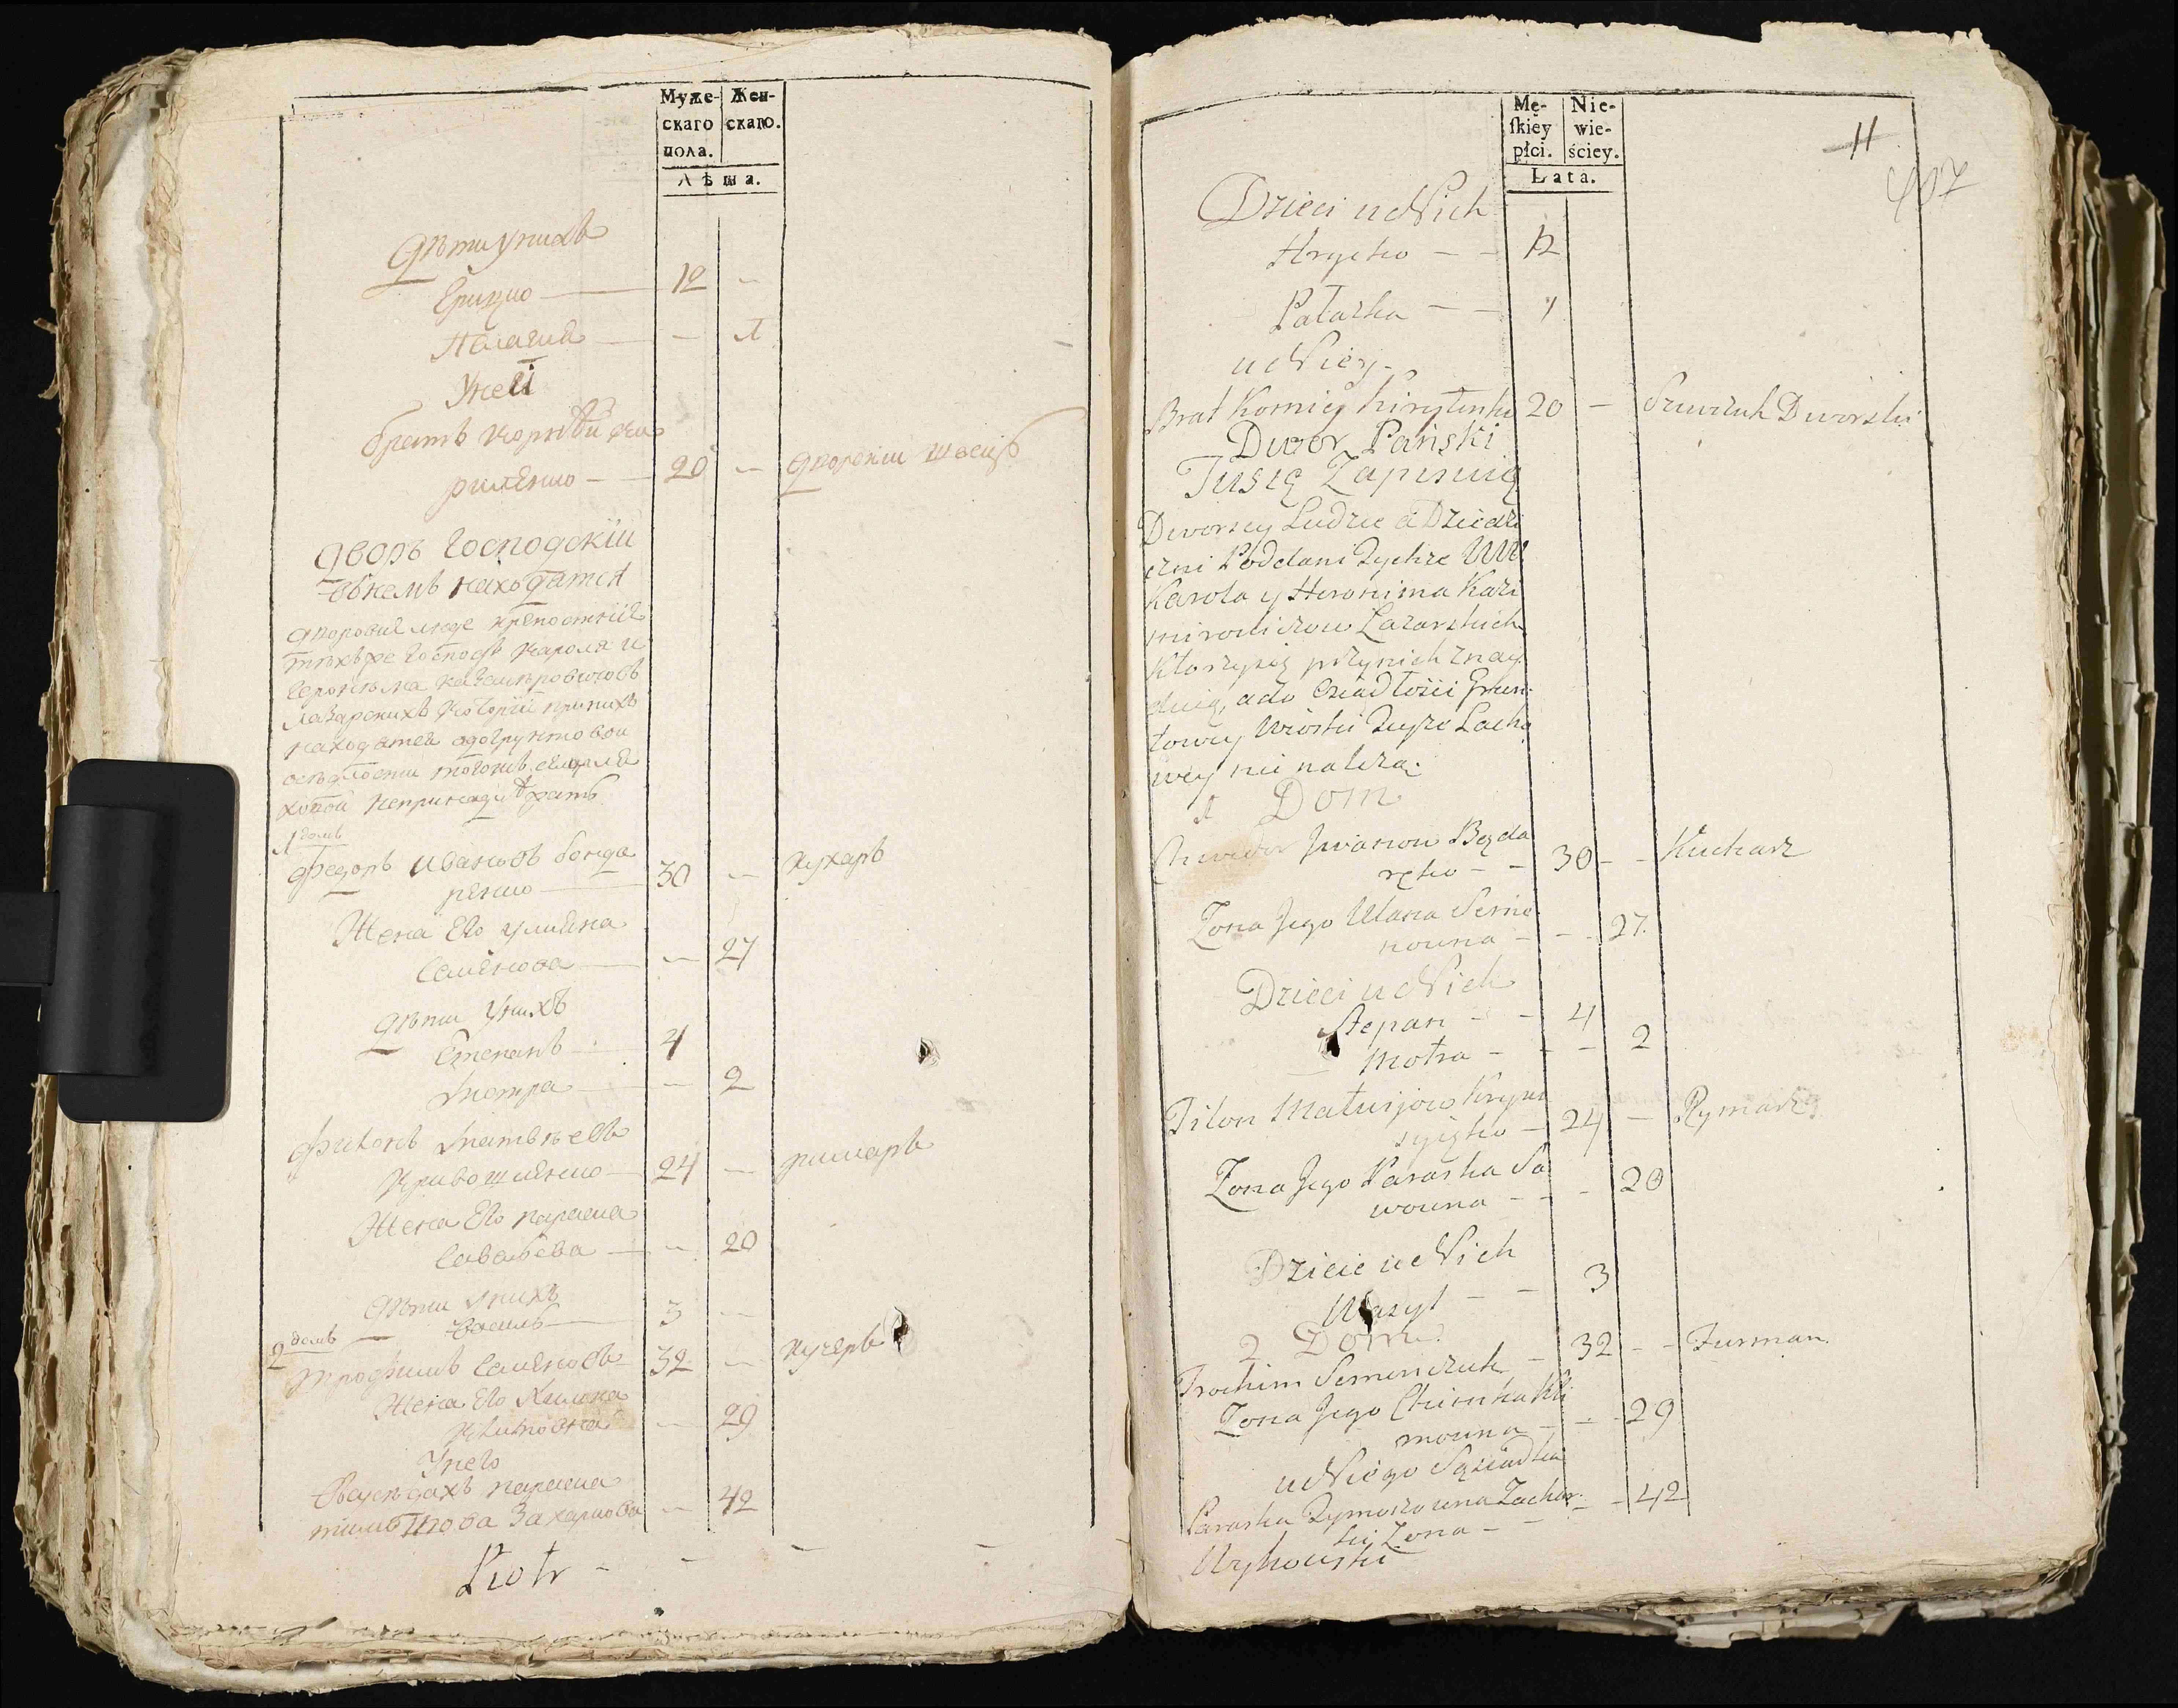 Муже- Жен-
скаго скаго.
пола.
Лѣта.
Дѣти у нихъ
Грицко — 12 —
Палагия — — 1
У ней
братъ Корнѣй Ки
риленко — 20 — дворскій швецъ
Дворъ Господскїи
въ немъ находятся
дворовие люде крепостнїе
тѣхъ же Господъ Кароля и
Геронѣма Казимѣровичовъ
Лазарскихъ которїи при них
находятся а до грунтовои
осѣдлости тогожъ села Ля
ховой непринадлѣжатъ
1 домъ
Федоръ Ивановъ бонда
ренко — 30 — кухаръ
Жена Его улияна
Семенова — — 27
Дѣти у нихъ
Степанъ — 4
Мотра — — 2
Филонъ Матвѣевъ
Кривошиенко — 24 — римаръ
Жена Его параска
Саваѣева — — 20
Дѣти у нихъ
Василь — 3 —
2 домъ
Трофимъ Семеновъ 32 — кучеръ
Жена Его Химка
Климовна — 29
У него
в сусѣдахъ параска
тимошова Захаркова — 42
Piotr - - - -
Mę- Nie-
skiéy wie-
płci. ściey.
Lata.
11
Dzieci u Nich
Hryćko — — 12
Pałaszka — — 1
u Niey.
Brat Korniey Kirylenko 20 — Szewczuk Dworski
Dwor Pański
Tu się Zapisuią
Dworscy Ludzie a Dziedzi
czni Poddani Tychże WW
Karola y Heronima Kazi
mirowiczow Łazarskich
Ktorzy się przy nich znay
duią, a do Osiadłosci Grun
towey Wioski Teyże Lacho
wey nie należą.
1 Dom
Chwedor Jwanow Będa
ręko — — 30 — — Kucharz
Zona Jego Ulana Seme
nowna — — — 27.
Dzieci u Nich
Stepan — — 4
Motra — — — 2
Filon Matwijow Krywo
szyięko — 24 — Rymarz
Zona Jego Paraska Sa
wowna — — — 20
Dziecie u Nich
Wasyl — — 3
2 Dom.
Trochim Semenczuk — 32 — — Furman.
Zona Jego Chimka Kli
mowna — — — 29
u Niego Sąsiadka
Paraska Tymoszowna Zachar — — 42
ki Zona — —
Wyhowski